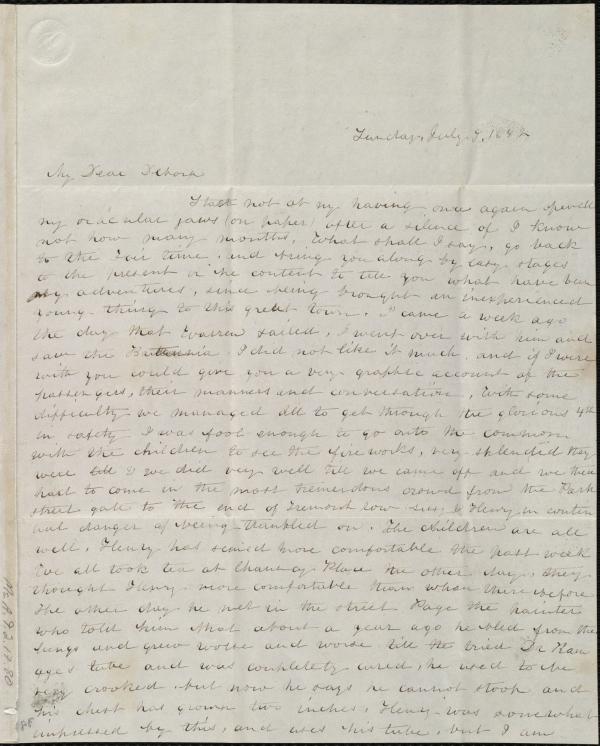 Sunday, July 9, 1842
My Dear Debora
Start not at my having once again opened
my oracular jaws (on paper) after a silence of I know
not how many months. What shall I say, go back
to the Fair time, and bring you along by easy stages
to the present or be content to tell you what have been
my adventures, since being brought an inexperienced
young thing to this great town. I came a week ago
the day that Warren sailed, I went over with him and
saw the Brittannia. I did not like it much, and if I were
with you would give you a very graphic account of the
passengers, their manners and conversation. With some
difficulty we managed all to get through the glorious 4th
in safety I was fool enough to go onto the common
with the children to see the fireworks, very splendid they
were & we did very well till we came off and we then
had to come in the most tremendous crowd from the Park
street gate to the end of Tremont row & Henry in contin
ual danger of being trambled on. The children are all
well, Henry has seemed more comfortable the past week
We all took tea at Chauncy Place the other day, they
thought Henry more comfortable than when there before
The other day he met in the street Page the painter
who told him that about a year ago he bled from the
lungs and grew worse and worse till he tried Dr Ram
age's tube and was completely cured, he used to be
very crooked but now he says he cannot stoop and
his chest has grown two inches, Henry was somewhat
impressed by this, and uses his tube, but I am
Ms.A.9.2.17.80